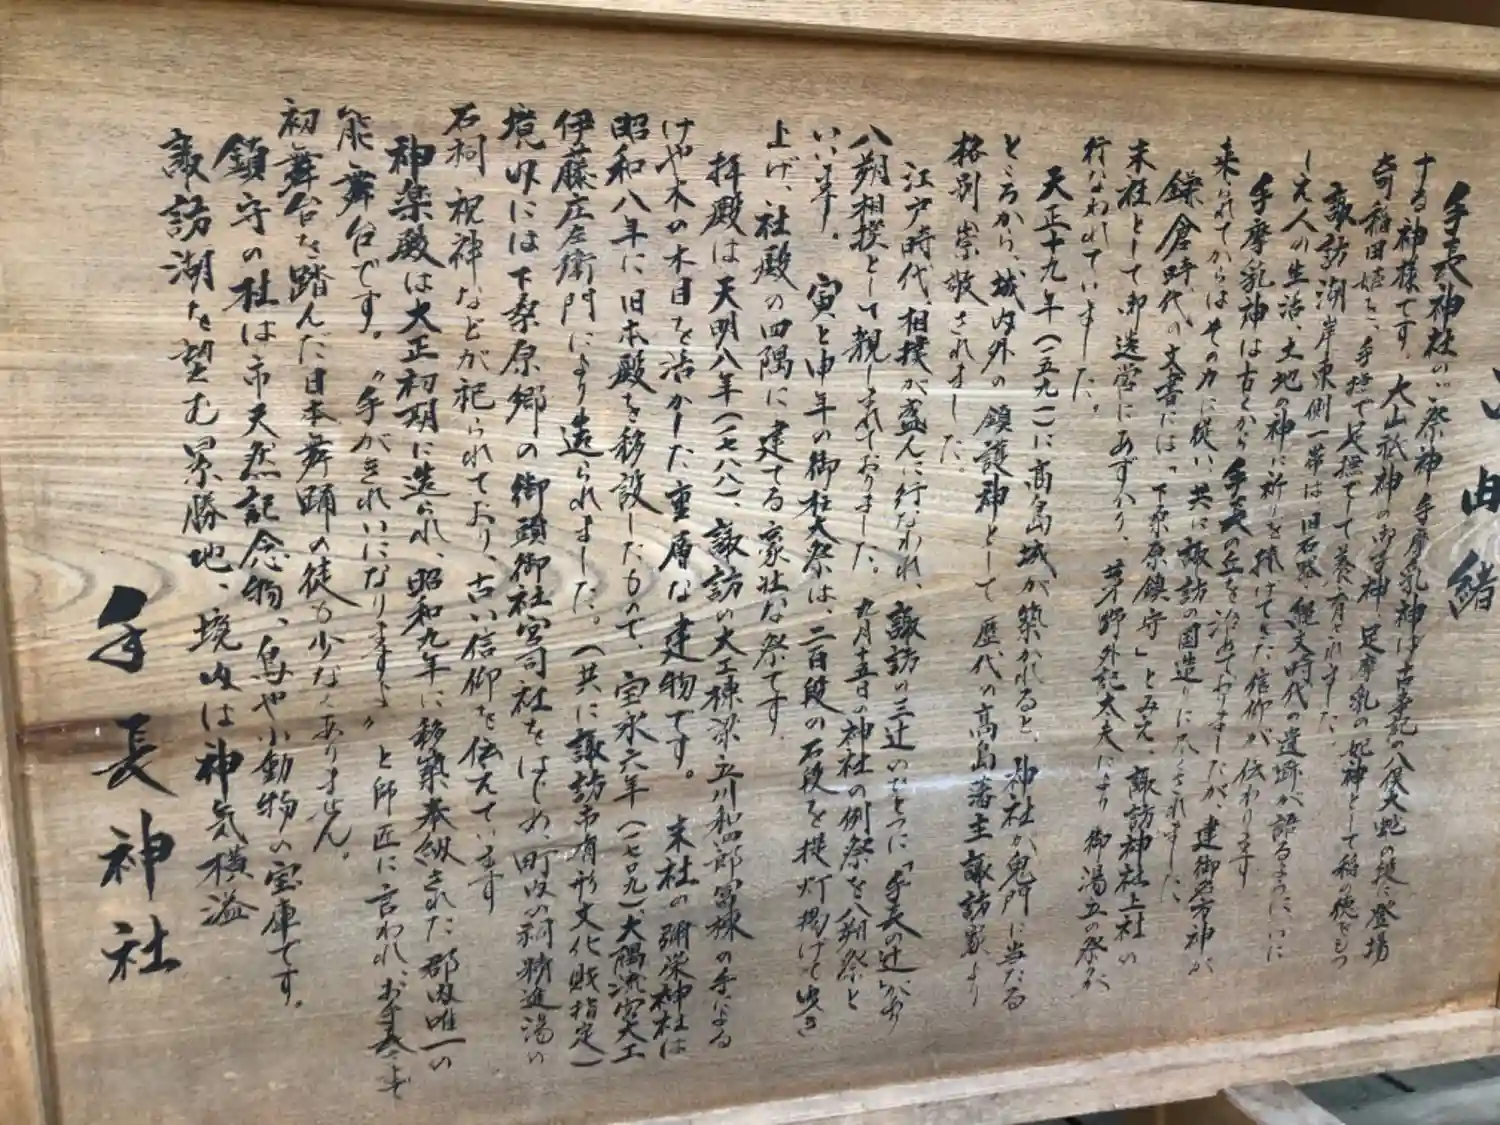 由緒
手長神社のご祭神 手摩乳神は古事記の八俣大蛇の段に登場
する神様です。大山祇神の御子神 足摩乳の妃神として稲の徳をもつ
奇稲田姫を、手撫で足撫でして養育されました。
諏訪湖岸東側一帯は旧石器、縄文時代の遺跡が語るように、いに
しえ人の生活、土地の神に祈りを捧げてきた信仰が伝わります
手摩乳神は古くから手長の丘を治めておりましたが、建御名方神が
来られてからはその力に従い共に諏訪の国造りに尽くされました
鎌倉時代の文書には「下桑原鎮守」とみえ、諏訪神社上社の
末社として御造営にあずかり、茅野外記大夫により御湯立の祭が
行なわれていました。
天正十九年(一五九一)に高島城が築かれると、神社が鬼門に当たる
ところから、城内外の鎮護神として歴代の高島藩主諏訪家より
格別崇敬されました。
江戸時代、相撲が盛んに行なわれ、諏訪の三辻のひとつに「手長の辻」があり
八朔相撲として親しまれておりました。九月十五日の神社の例祭を八朔祭と
いいます。寅と申年の御柱大祭は、二百段の石段を提灯掲げて曳き
上げ、社殿の四隅に建てる豪壮な祭です。
拝殿は天明八年(一七八八)、諏訪の大工棟梁立川和四郎冨棟の手による
けや木の木目を活かした重層な建物です。末社の弼栄神社は
昭和八年に旧本殿を移設したもので、宝永六年(一七〇九)、大隅流宮大工
伊藤庄左衛門により造られました。(共に諏訪市有形文化財指定)
境内には下桑原郷の御頭御社宮司社をはじめ、町内の祠、精進湯の
石祠 祝神などが祀られており、古い信仰を伝えています
神楽殿は大正初期に造られ、昭和九年に移築奉納された郡内唯一の
能舞台です。“手がきれいになりますよ”と師匠に言われ、お手長さまで
初舞台を踏んだ日本舞踊の徒も少なくありません。
鎮守の杜は市天然記念物、鳥や小動物の宝庫です。
諏訪湖を望む景勝地、境内は神気横溢
手長神社